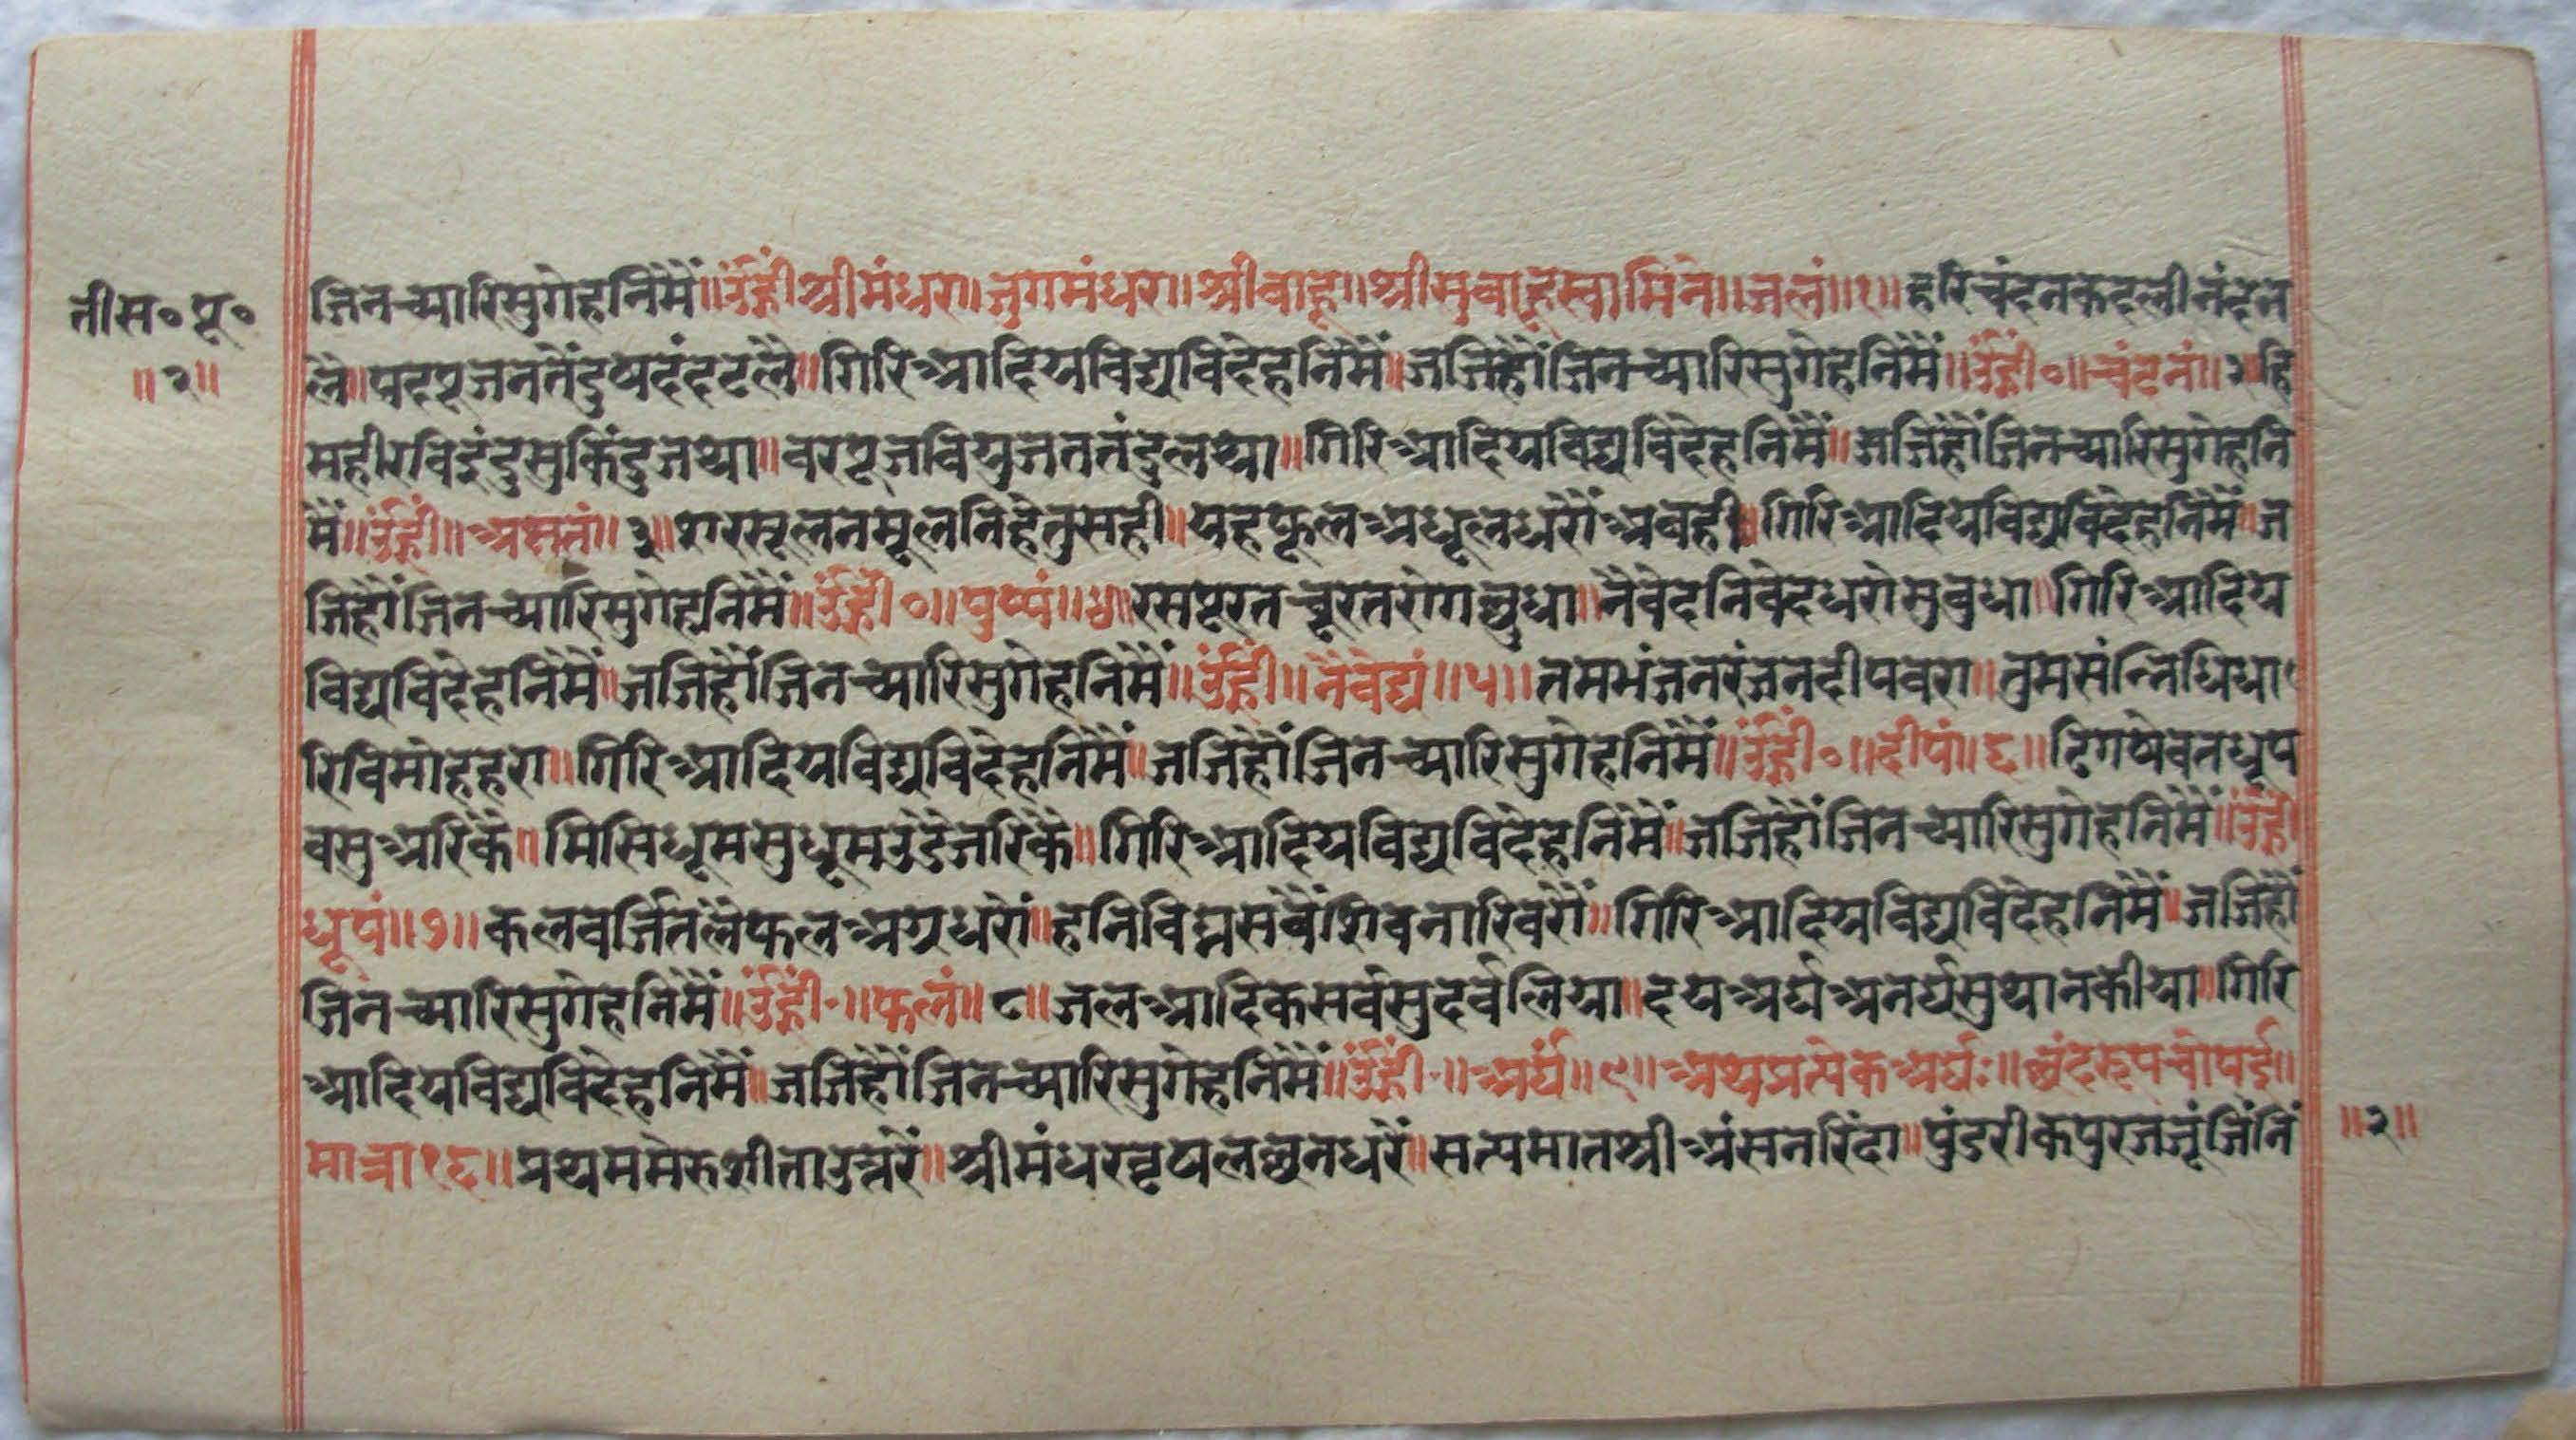 तीस॰ पू॰
॥२॥
जिनच्यारिसुगेहनिमैं॥उंह्रीं श्रीमंधरा॥जुगमंधरा॥श्रीबाहू॥श्रीसुबाहूस्वामिने॥जलं॥१॥हरिचंदनकदलीनंदन
लै॥पदपूजनतैंदुषदंदटलै॥गिरिआदियविद्युविदेहनिमैं॥जजिहौंजिनच्यारिसुगेहनिमैं॥उंह्रीं॰॥चंदनं॥२॥हि
महीरविइंदुसुकिंदुजथा॥वरपूजवियुजततंदुलथा॥गिरिआदियविद्युविदेहनिमैं॥जजिहौंजिनच्यारिसुगेहनि
मैं॥उंह्रीं॥अक्षतं॥३॥शरसूलनमूलनिहेतुसही॥यहफूलअधूलधरौंअवही॥गिरिआदियविद्युविदेहनिमैं॥ज
जिहौंजिनच्यारिसुगेहनिमैं॥उंह्रीं॰॥पुष्पं॥४॥रसपूरतचूरतरोगछुधा॥नैवेदनिवेदधरोसुबुधा॥गिरिआदिय
विद्युविदेहनिमैं॥जजिहौंजिनच्यारिसुगेहनिमैं॥उंह्रीं॥नैवेद्यं॥५॥तमभंजनरंजनदीपवरा॥तुमसंन्निधिधा
रिविमोहहरा॥गिरिआदियविद्युविदेहनिमैं॥जजिहौंजिनच्यारिसुगेहनिमैं॥उंह्रीं॰॥दीपं॥६॥दिगषेवतधूप
वसुअरिकै॥मिसिधूमसुधूमउडेजरिकै॥गिरिआदियविद्युविदेहनिमैं॥जजिहौंजिनच्यारिसुगेहनिमैं॥उंह्रीं
धूपं॥७॥कलवर्जितलैफलअग्रधरों॥हनिविघ्नसवैंशिवनारिवरौं॥गिरिआदियविद्युविदेहनिमैं॥जजिहौं
जिनच्यारिसुगेहनिमैं॥उंह्रीं॰॥फलं॥८॥जलआदिकसर्वसुदर्वलिया॥दयअर्घअनर्घसुथानकीया॥गिरि
आदियविद्युविदेहनिमैं॥जजिहौंजिनच्यारिसुगेहनिमैं॥उंह्रीं॰॥अर्घं॥९॥अथप्रत्येकअर्घः॥छंदरूपचौपई॥
मात्रा१६॥प्रथममेरुशीताउत्तरें॥श्रीमंधरवृषलछनधरें॥सत्यमातश्रीअंसनरिंदा॥पुंडरीकपुरजजूंजिंनिं
॥२॥